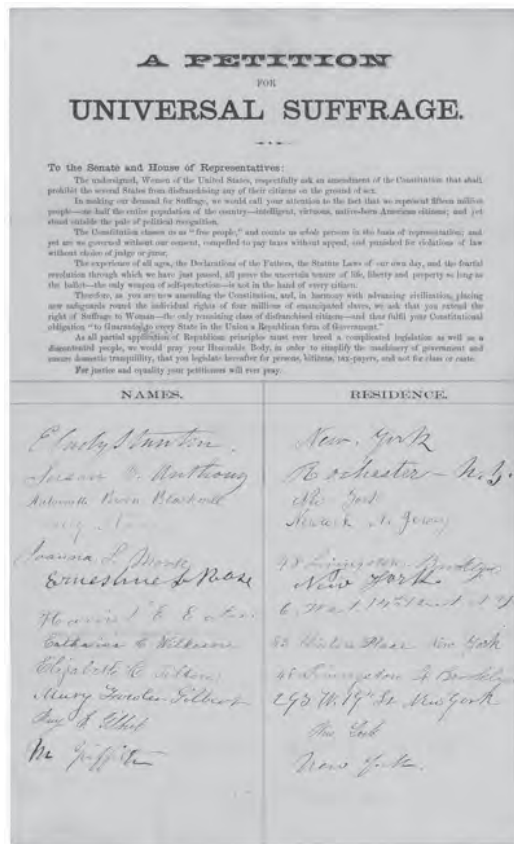 A PETITION
FOR
UNIVERSAL SUFFRAGE.
To the Senate and House of Representatives:
The undersigned, Women of the United States, respectfully ask an amendment of the Constitution that shall
prohibit the several States from disfranchising any of their citizens on the ground of sex.
In making our demand for Suffrage, we would call your attention to the fact that we represent fifteen million
people—one half the entire population of the country—intelligent, virtuous, native-born American citizens; and yet
stand outside the pale of political recognition.
The Constitution classes us as "free people," and counts us whole persons in the basis of representation; and
yet are we governed without our consent, compelled to pay taxes without appeal, and punished for violations of law
without choice of judge or juror.
The experience of all ages, the Declarations of the Fathers, the Statute Laws of our own day, and the fearful
revolution through which we have just passed, all prove the uncertain tenure of life, liberty and property so long as
the ballot—the only weapon of self-protection—is not in the hand of every citizen.
Therefore, as you are now amending the Constitution, and, in harmony with advancing civilization, placing
new safeguards round the individual rights of four millions of emancipated slaves, we ask that you extend the
right of Suffrage to Woman—the only remaining class of disfranchised citizens—and thus fulfil your Constitutional
obligation "to Guarantee to every State in the Union a Republican form of Government."
As all partial application of Republican principles must ever breed a complicated legislation as well as a
discontented people, we would pray your Honorable Body, in order to simplify the machinery of government and
ensure domestic tranquillity, that you legislate hereafter for persons, citizens, tax-payers, and not for class or caste.
For justice and equality your petitioners will ever pray.
NAMES. RESIDENCE.
E Cady Stanton. New. York
Susan B. Anthony Rochester – N.Y.
Antoinette Brown Blackwell New York
Newark N. Jersey
Joanna S. Morse 48 Livingston. Brooklyn
Ernestine L Rose New York
Harriet E. Eaton 6. West 14th Street N.Y.
Catharine C Wilkeson 83 Clinton Place New York
Elizabeth R Tilton 48 Livingston St Brooklyn
Mary Fowler Gilbert 293 W. 19th St New York
Gilbert New York
M Griffith New York.